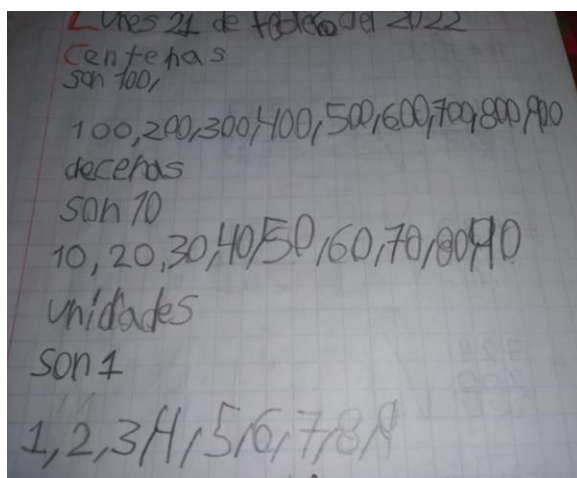 Lunes 21 de febrero del 2022
Centenas
son 100,
100,200,300,400,500,600,700,800,900
decenas
son 10
10,20,30,40,50,60,70,80,90
unidades
son 1
1,2,3,4,5,6,7,8,9